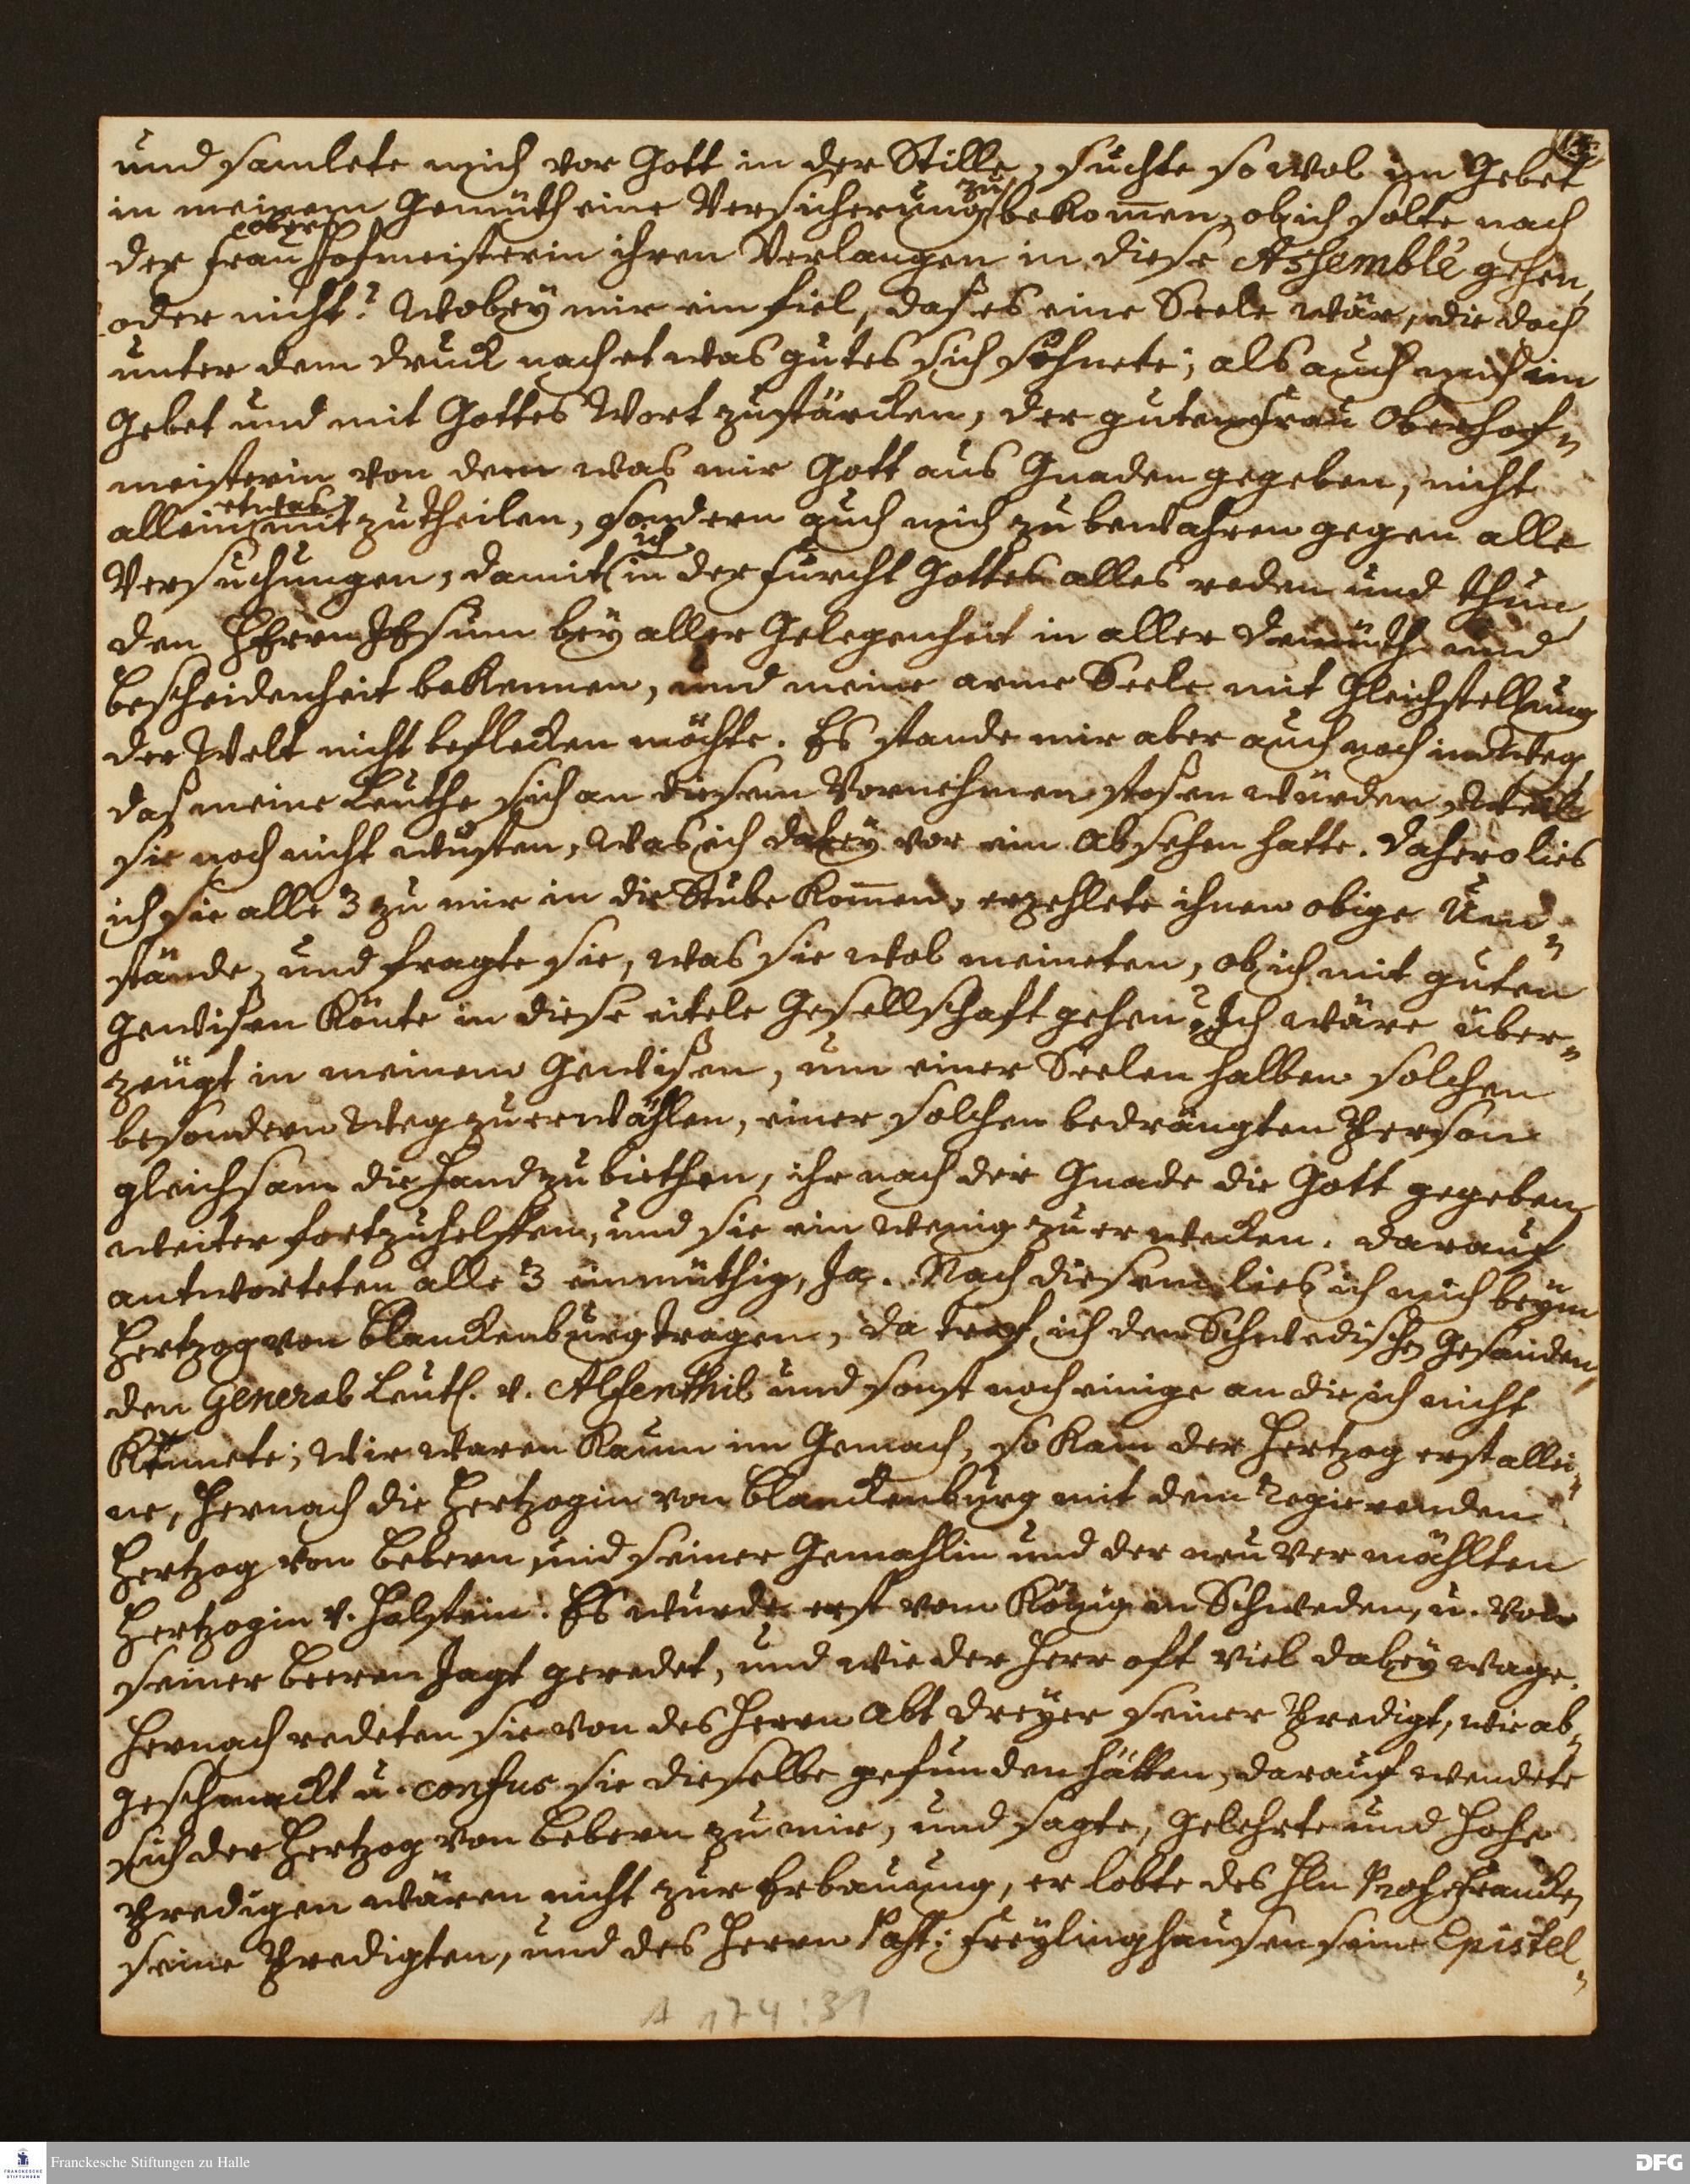 und samlete mich vor Gott in der Stille, suchte so wol im Gebet
in meinem Gemüth eine Versicherung zu bekom̅en, ob ich solte nach
der Frau Ober Hofmeisterin ihren Verlangen in diese Assemblé gehen,
oder nicht? Wobey mir ein fiel, daß es eine Seele wär, die doch
unter dem Druck nach etwas gutes sich sehnete; als auch mich im
Gebet und mit Gottes Wort zustärcken, der guten Frau Oberhof=
meisterin von dem was mir Gott aus Gnaden gegeben, nicht
allein etwas mit zutheilen, sondern auch mich zu bewahren gegen alle
Versuchungen, damit ich in der Furcht Gottes alles reden und thun,
den HErrn JEsum bey aller Gelegenheit in aller Demuth und
Bescheidenheit bekennen, und meine arme Seele mit Gleichstellung
der Welt nicht beflecken möchte. Es stande mir aber auch noch im Weg
daß meine Leuthe sich an diesem Vornehmen stoßen würden, weil
sie noch nicht wusten, was ich dabey vor ein Absehen hatte. Dahero lies
ich sie alle 3 zu mir in die Stube kom̅en, erzehlete ihnen obige Um=
stände, und fragte sie, was sie wol meineten, ob ich mit guten
Gewißen könte in diese eitele Gesellschaft gehen? Ich wäre über=
zeugt in meinem Gewißen, um einer Seelen halben solchen
besondern Weg zu erwählen, einer solchen bedrängten Person
gleichsam die Hand zu biethen, ihr nach der Gnade die Gott gegeben
weiter fortzuhelffen, und sie ein wenig zu erwecken. Darauf
antworteten alle 3 einmüthig, Ja. Nach diesem lies ich mich beym
Hertzog von Blanckenburg tragen, da traf ich den Schwedischen Gesanden,
den General Leut. v. Alfenthil und sonst noch einige an die ich nicht
kennete; Wir waren kaum im Gemach, so kam der Hertzog erst allei=
ne, hernach die Hertzogin von Blanckenburg mit dem Regierenden
Hertzog von Bebern und seiner Gemahlin und der neu Vermählten
Hertzogin v. Holstein. Es wurde erst vom König in Schweden, u. von
seiner Beeren Jagt geredet, und wie der Herr oft viel dabey wage.
Hernach redeten sie von des Herrn Abt Dreyer seiner Predigt, wie ab=
geschmackt u. confus sie dieselbe gefunden hätten, darauf wendete
sich der Hertzog von Bebern zu mir, und sagte, gelehrte und hohe
Predigen wären nicht zur Erbauung, er lobte des Hln Prof. Francken
seine Predigten, und des Herrn Past: Freylinghausen seine Epistel=
A 174:31
Franckesche Stiftungen zu Halle
FRANCKESCHE STIFTUNGEN
DFG